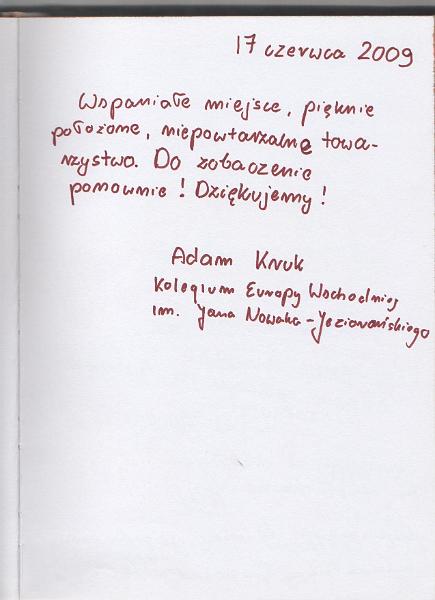 17 czerwca 2009
Wspaniałe miejsce, pięknie
położone, niepowtarzalne towa-
rzystwo. Do zobaczenia
ponownie! Dziękujemy!
Adam Kruk
Kolegium Europy Wschodniej
im. Jana Nowaka-Jeziorańskiego